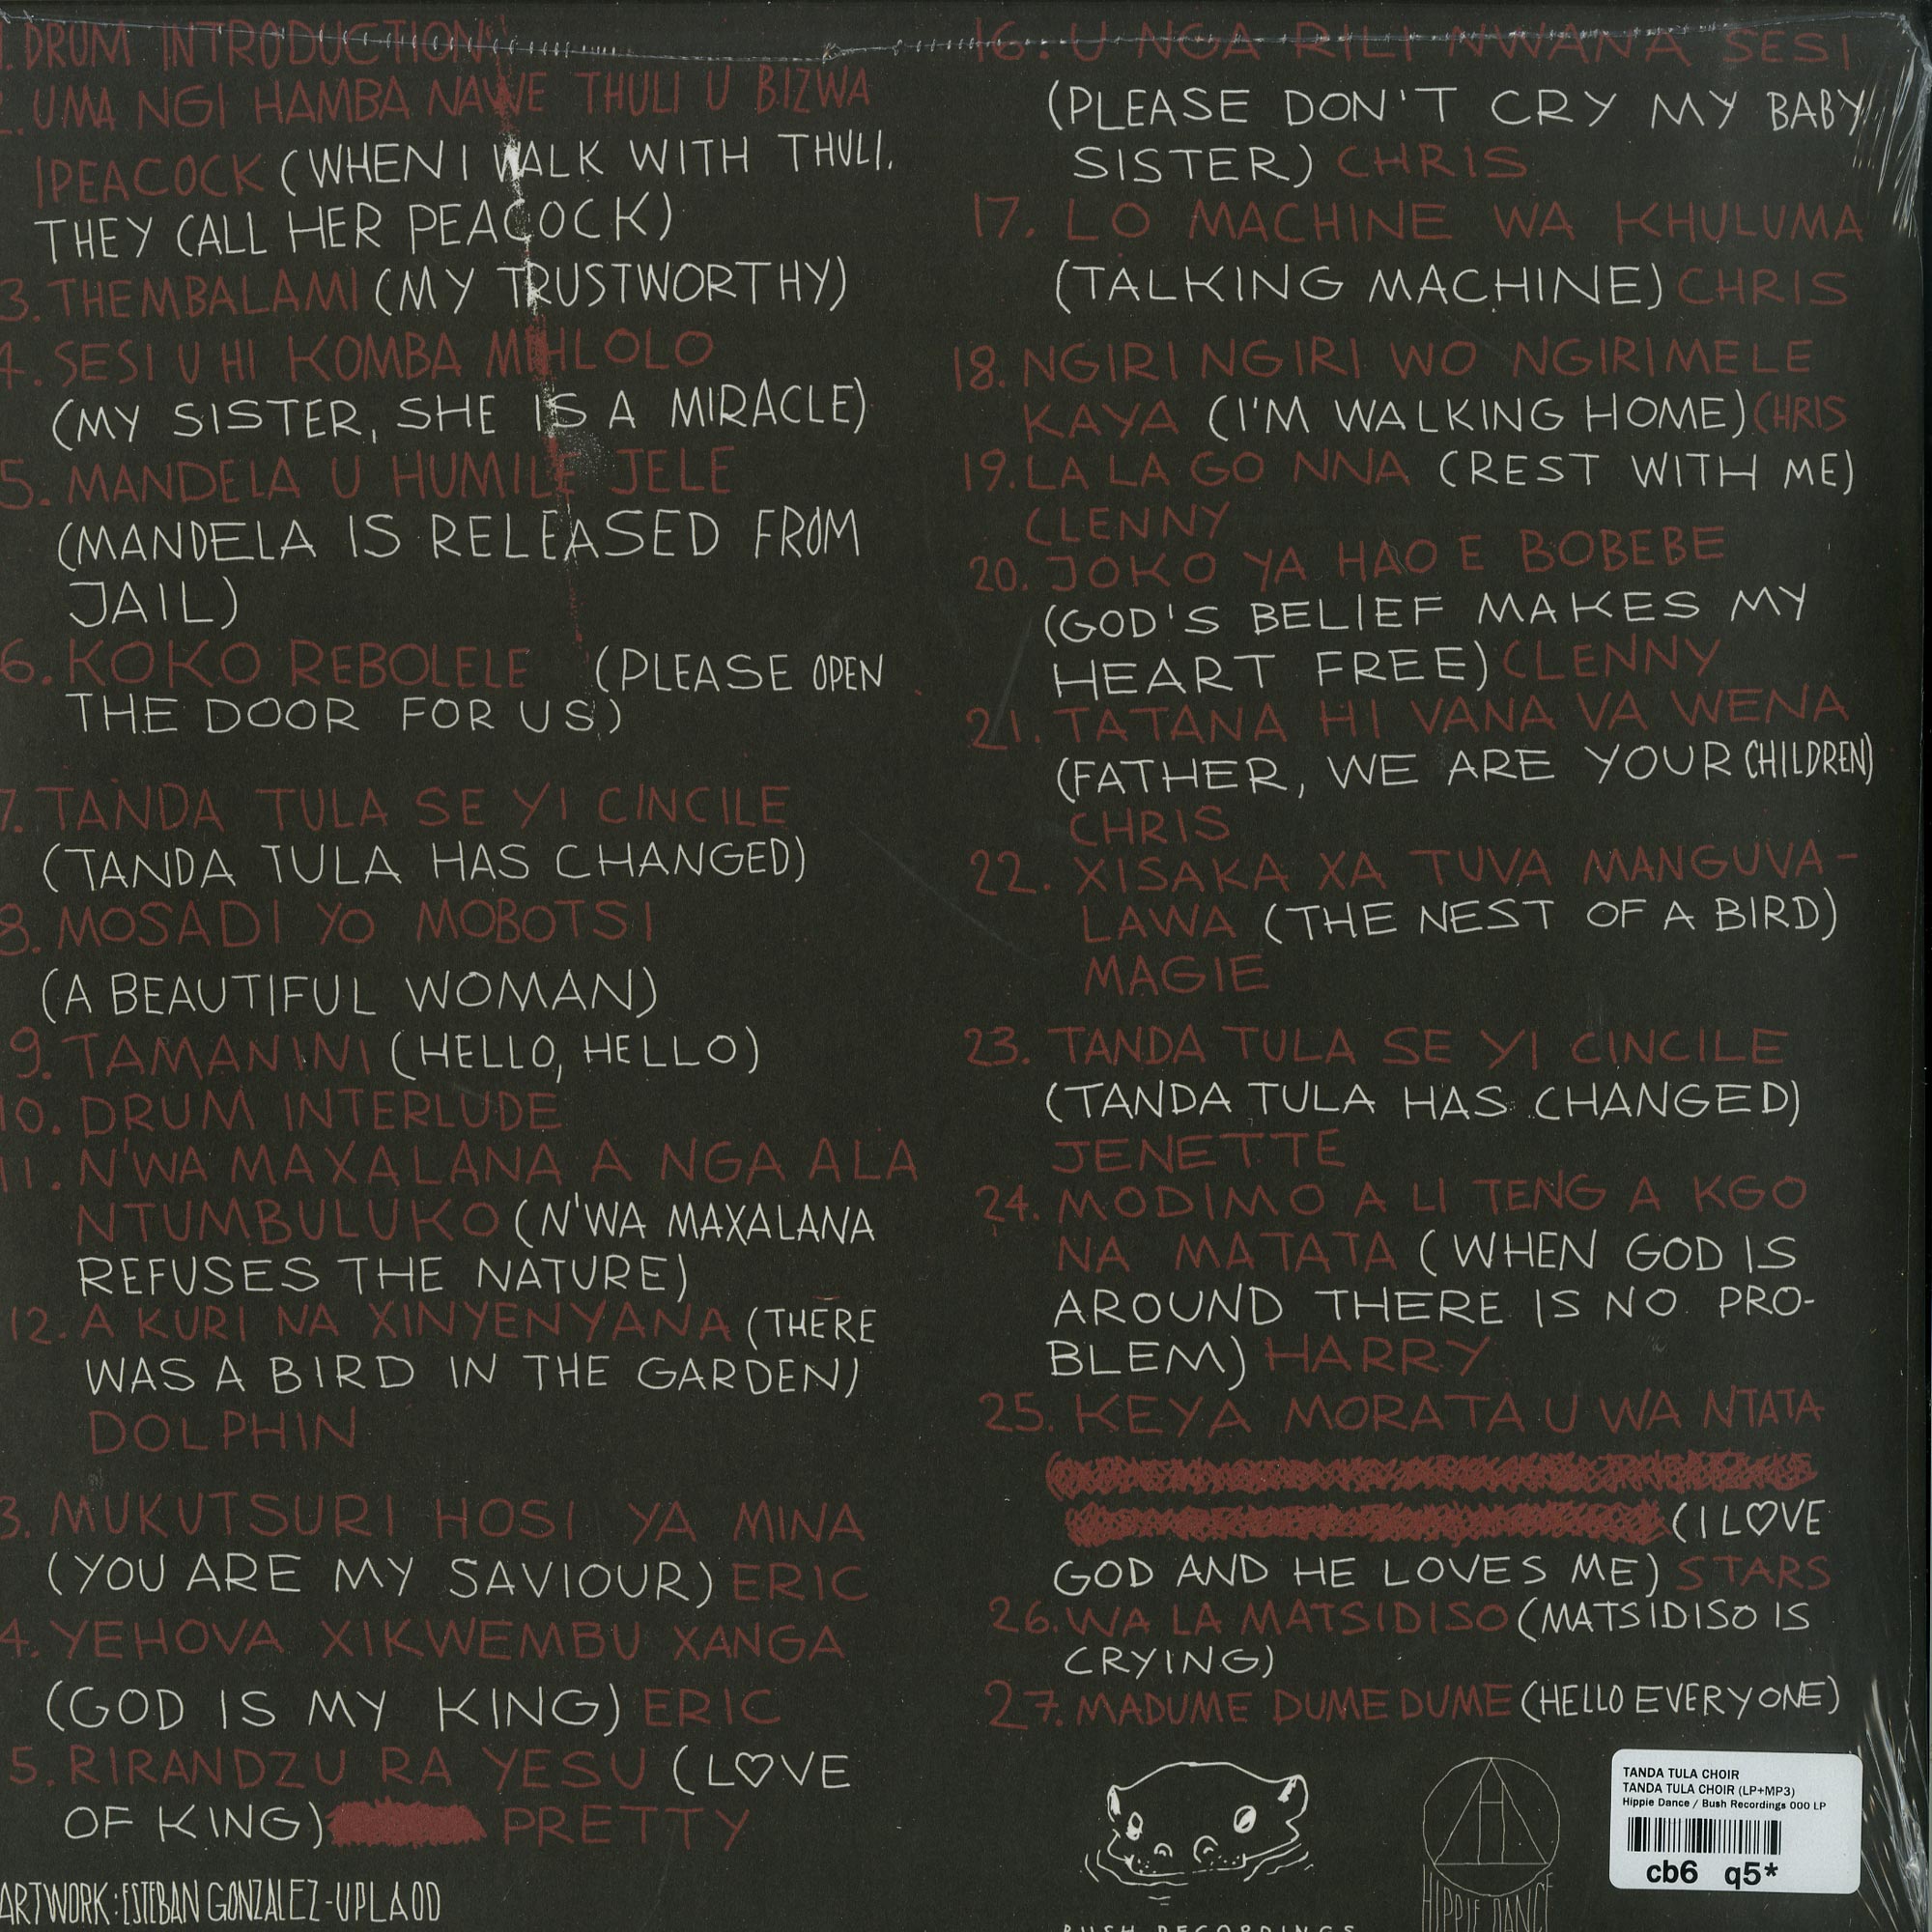 1. DRUM INTRODUCTION
2. UMA NGI HAMBA NAWE THULI U BIZWA
IPEACOCK (WHEN I WALK WITH THULI,
THEY CALL HER PEACOCK)
3. THEMBALAMI (MY TRUSTWORTHY)
4. SESI U HI KOMBA MIHLOLO
(MY SISTER, SHE IS A MIRACLE)
5. MANDELA U HUMILE JELE
(MANDELA IS RELEASED FROM
JAIL)
6. KOKO REBOLELE (PLEASE OPEN
THE DOOR FOR US)
7. TANDA TULA SE YI CINCILE
(TANDA TULA HAS CHANGED)
8. MOSADI YO MOBOTSI
(A BEAUTIFUL WOMAN)
9. TAMANINI (HELLO, HELLO)
10. DRUM INTERLUDE
11. N'WA MAXALANA A NGA ALA
NTUMBULUKO (N'WA MAXALANA
REFUSES THE NATURE)
12. A KURI NA XINYENYANA (THERE
WAS A BIRD IN THE GARDEN)
DOLPHIN
3. MUKUTSURI HOSI YA MINA
(YOU ARE MY SAVIOUR) ERIC
4. YEHOVA XIKWEMBU XANGA
(GOD IS MY KING) ERIC
5. RIRANDZU RA YESU (L♡VE
OF KING) PRETTY
ARTWORK: ESTEBAN GONZALEZ-UPLAOD
16. U NGA RILI NWANA SESI
(PLEASE DON'T CRY MY BABY
SISTER) CHRIS
17. LO MACHINE WA KHULUMA
(TALKING MACHINE) CHRIS
18. NGIRI NGIRI WO NGIRIMELE
KAYA (I'M WALKING HOME) CHRIS
19. LA LA GO NNA (REST WITH ME)
CLENNY
20. JOKO YA HAO E BOBEBE
(GOD'S BELIEF MAKES MY
HEART FREE) CLENNY
21. TATANA HI VANA VA WENA
(FATHER, WE ARE YOUR CHILDREN)
CHRIS
22. XISAKA XA TUVA MANGUVA-
LAWA (THE NEST OF A BIRD)
MAGIE
23. TANDA TULA SE YI CINCILE
(TANDA TULA HAS CHANGED)
JENETTE
24. MODIMO A LI TENG A KGO
NA MATATA (WHEN GOD IS
AROUND THERE IS NO PRO-
BLEM) HARRY
25. KEYA MORATA U WA NTATA
(I L♡VE
GOD AND HE LOVES ME) STARS
26. WA LA MATSIDISO (MATSIDISO IS
CRYING)
27. MADUME DUME DUME (HELLO EVERYONE)
BUSH RECORDINGS
HIPPIE DANCE
TANDA TULA CHOIR
TANDA TULA CHOIR (LP+MP3)
Hippie Dance / Bush Recordings 000 LP
cb6 q5*